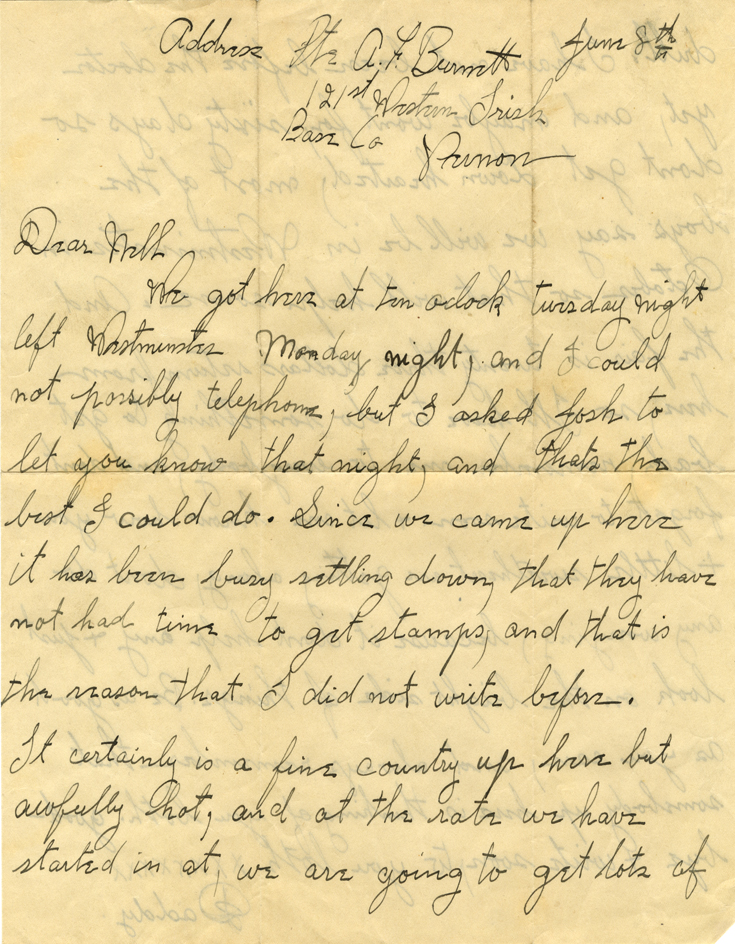 Address Pte A. F. Burnett June 8th
121st Western Irish
Base Co
Vernon
Dear Nell
We got here at ten oclock tuesday night
left Westminster Monday night, and I could
not possibly telephone, but I asked Josh to
let you know that night, and thats the
best I could do. Since we came up here
it has been busy settling down, that they have
not had time to get stamps, and that is
the reason that I did not write before.
It certainly is a fine country up here but
awfully hot, and at the rate we have
started in at, we are going to get lots of